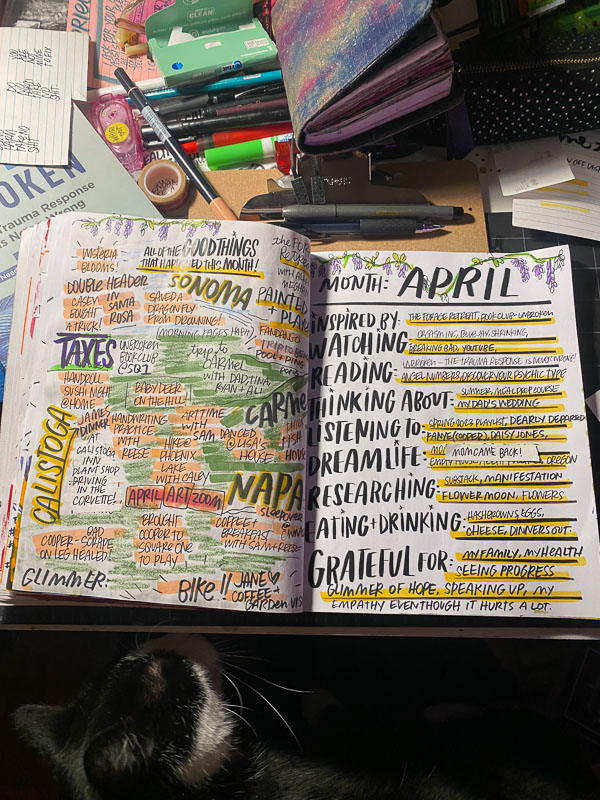 YOU
ARE
NOT
MINE
TO FIX
DO
HARD
SHIT
CLEAN
Orbit
OKEN
Trauma Response
WISTERIA
BLOOMS!
ALL OF THE GOOD THINGS
THAT HAPPENED THIS MONTH!
SONOMA
DOUBLE HEADER
CASEY
BOUGHT
A TRICK!
IN
SANTA
ROSA
SAVED A
DRAGONFLY
FROM DROWNING!
(MORNING PAGES HABIT)
PAINTED
+ PLAY
FANDANGO
POOL + PIZZA
TAXES
UNBROKEN
BOOK CLUB
CS01
trip to
CARMEL
WITH DAD, TINA,
RYAN + ALI
HANDROLL
SUSHI NIGHT
@HOME
BABY DEER
ON THE HILL
CARME
JAMES
DINNER
AT
CALISTOGA
INN
PLANT SHOP
DRIVING
IN THE
CORVETTE!
CALISTOGA
HANDWRITING
PRACTICE
WITH
REESE
ART TIME
WITH
SAM
HIKE @
PHOENIX
LAKE
WITH CALEY
DANCED
@ LISA'S
HOUSE
FISH
HOUSE
APRIL ART ZOOM
NAPA
SLEEPOVER
BAD
COOPER-SCRAPE
ON LEG HEALED!
BROUGHT
COOPER TO
SQUARE ONE
TO PLAY
COFFEE +
BREAKFAST
WITH SAM + REESE
GLIMMER:
BIKE!!
JANE
COFFEE +
GARDEN VIS
MONTH: APRIL
INSPIRED BY: THE FORAGE RETREAT, BOOK CLUB-UNBROKEN
WATCHING: ORGASM INC, BLUE JAY, SHRINKING,
BREAKING BAD, YOUTUBE,
READING: UNBROKEN - THE TRAUMA RESPONSE IS NEVER WRONG!
ANGEL NUMBERS, DISCOVER YOUR PSYCHIC TYPE
THINKING ABOUT: SUMMER, MEAL PREP COURSE
MY DAD'S WEDDING
LISTENING TO: SPRING 2023 PLAYLIST, DEARLY DEPARTED
FAMOE (COOPER), DAISY JONES,
DREAM LIFE: MOM CAME BACK!
OREGON
RESEARCHING: SUBSTACK, MANIFESTATION
FLOWER MOON, FLOWERS
EATING + DRINKING: HASHBROWNS, EGGS,
CHEESE, DINNERS OUT.
GRATEFUL FOR: MY FAMILY, MY HEALTH
SEEING PROGRESS
GLIMMER OF HOPE, SPEAKING UP, MY
EMPATHY EVEN THOUGH IT HURTS A LOT.